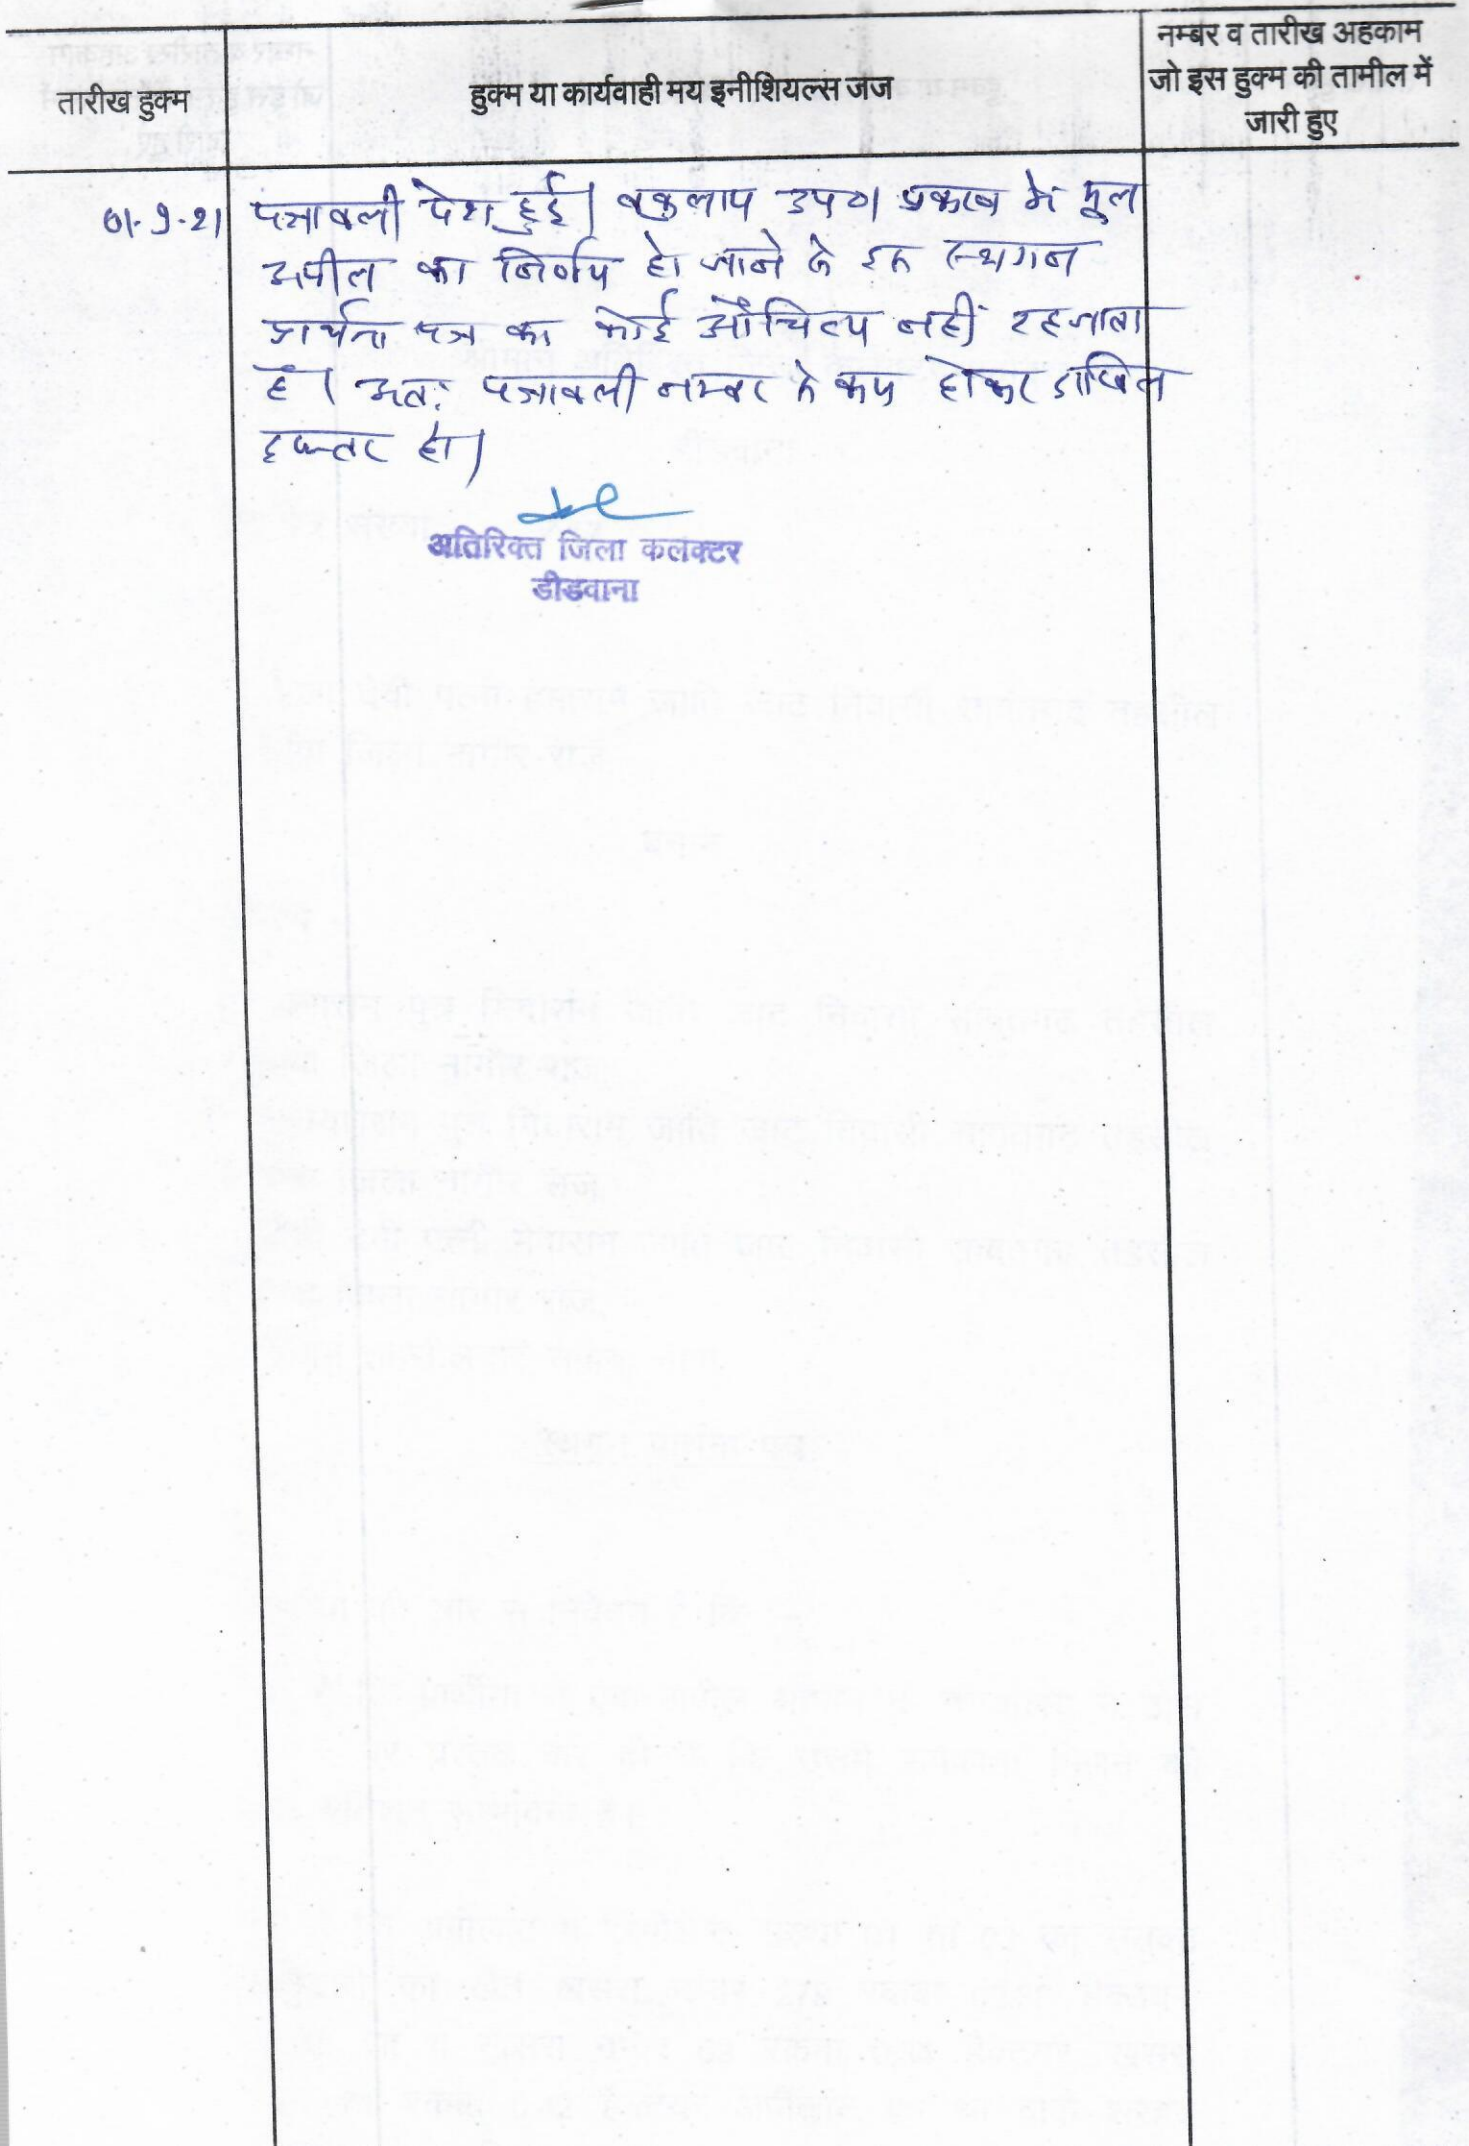 तारीख हुक्म
हुक्म या कार्यवाही मय इनीशियल्स जज
नम्बर व तारीख अहकाम
जो इस हुक्म की तामील में
जारी हुए
01-9-21
पत्रावली पेश हुई। वकुलाय उप० प्रकरण में मूल
अपील का निर्णय हो जाने से इस स्थगन
प्रार्थना पत्र का कोई औचित्य नहीं रहजाता
है। अतः पत्रावली नम्बर से कम होकर दाखिल
दफ्तर हो।
अतिरिक्त जिला कलक्टर
डीडवाना